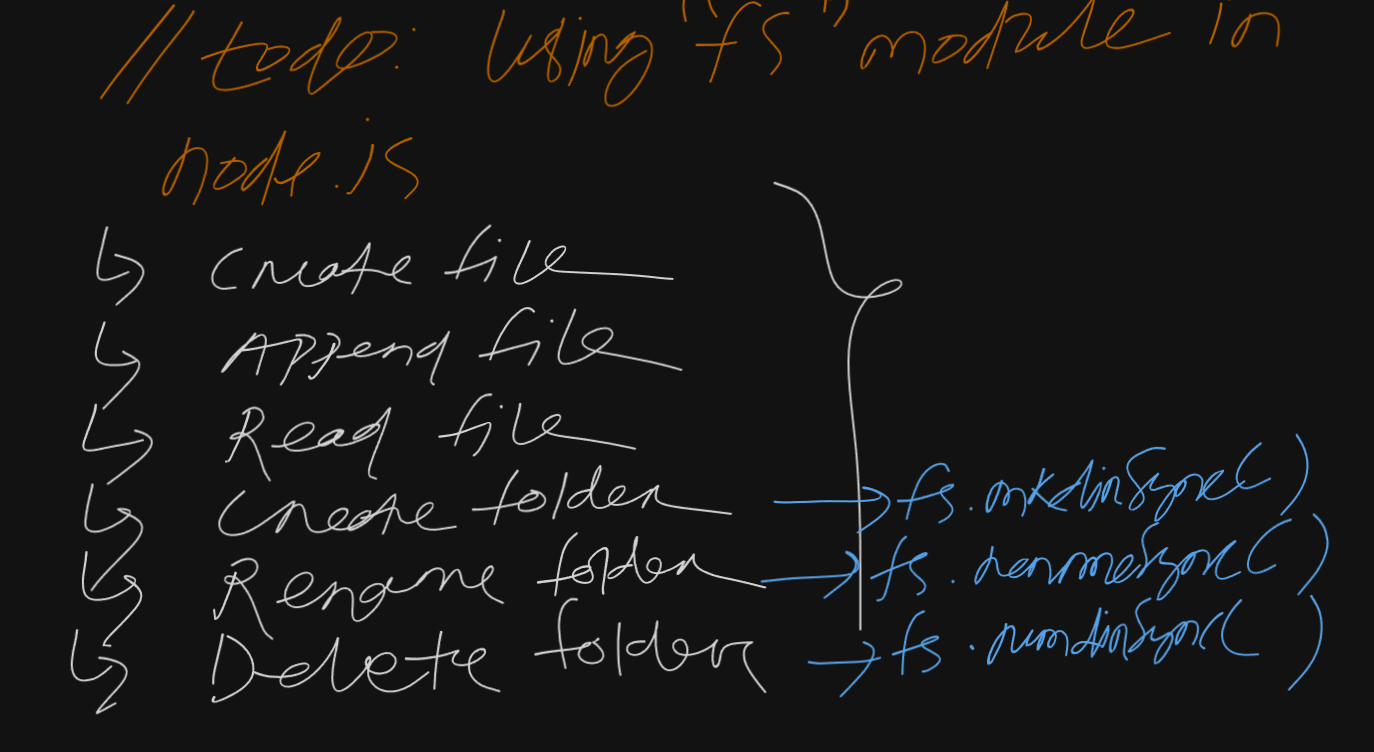 // todo: Using "fs" module in
node.js
↳ Create file
↳ Append file
↳ Read file
↳ Create folder → fs.mkdirSync()
↳ Rename folder → fs.renameSync()
↳ Delete folder → fs.rmdirSync()